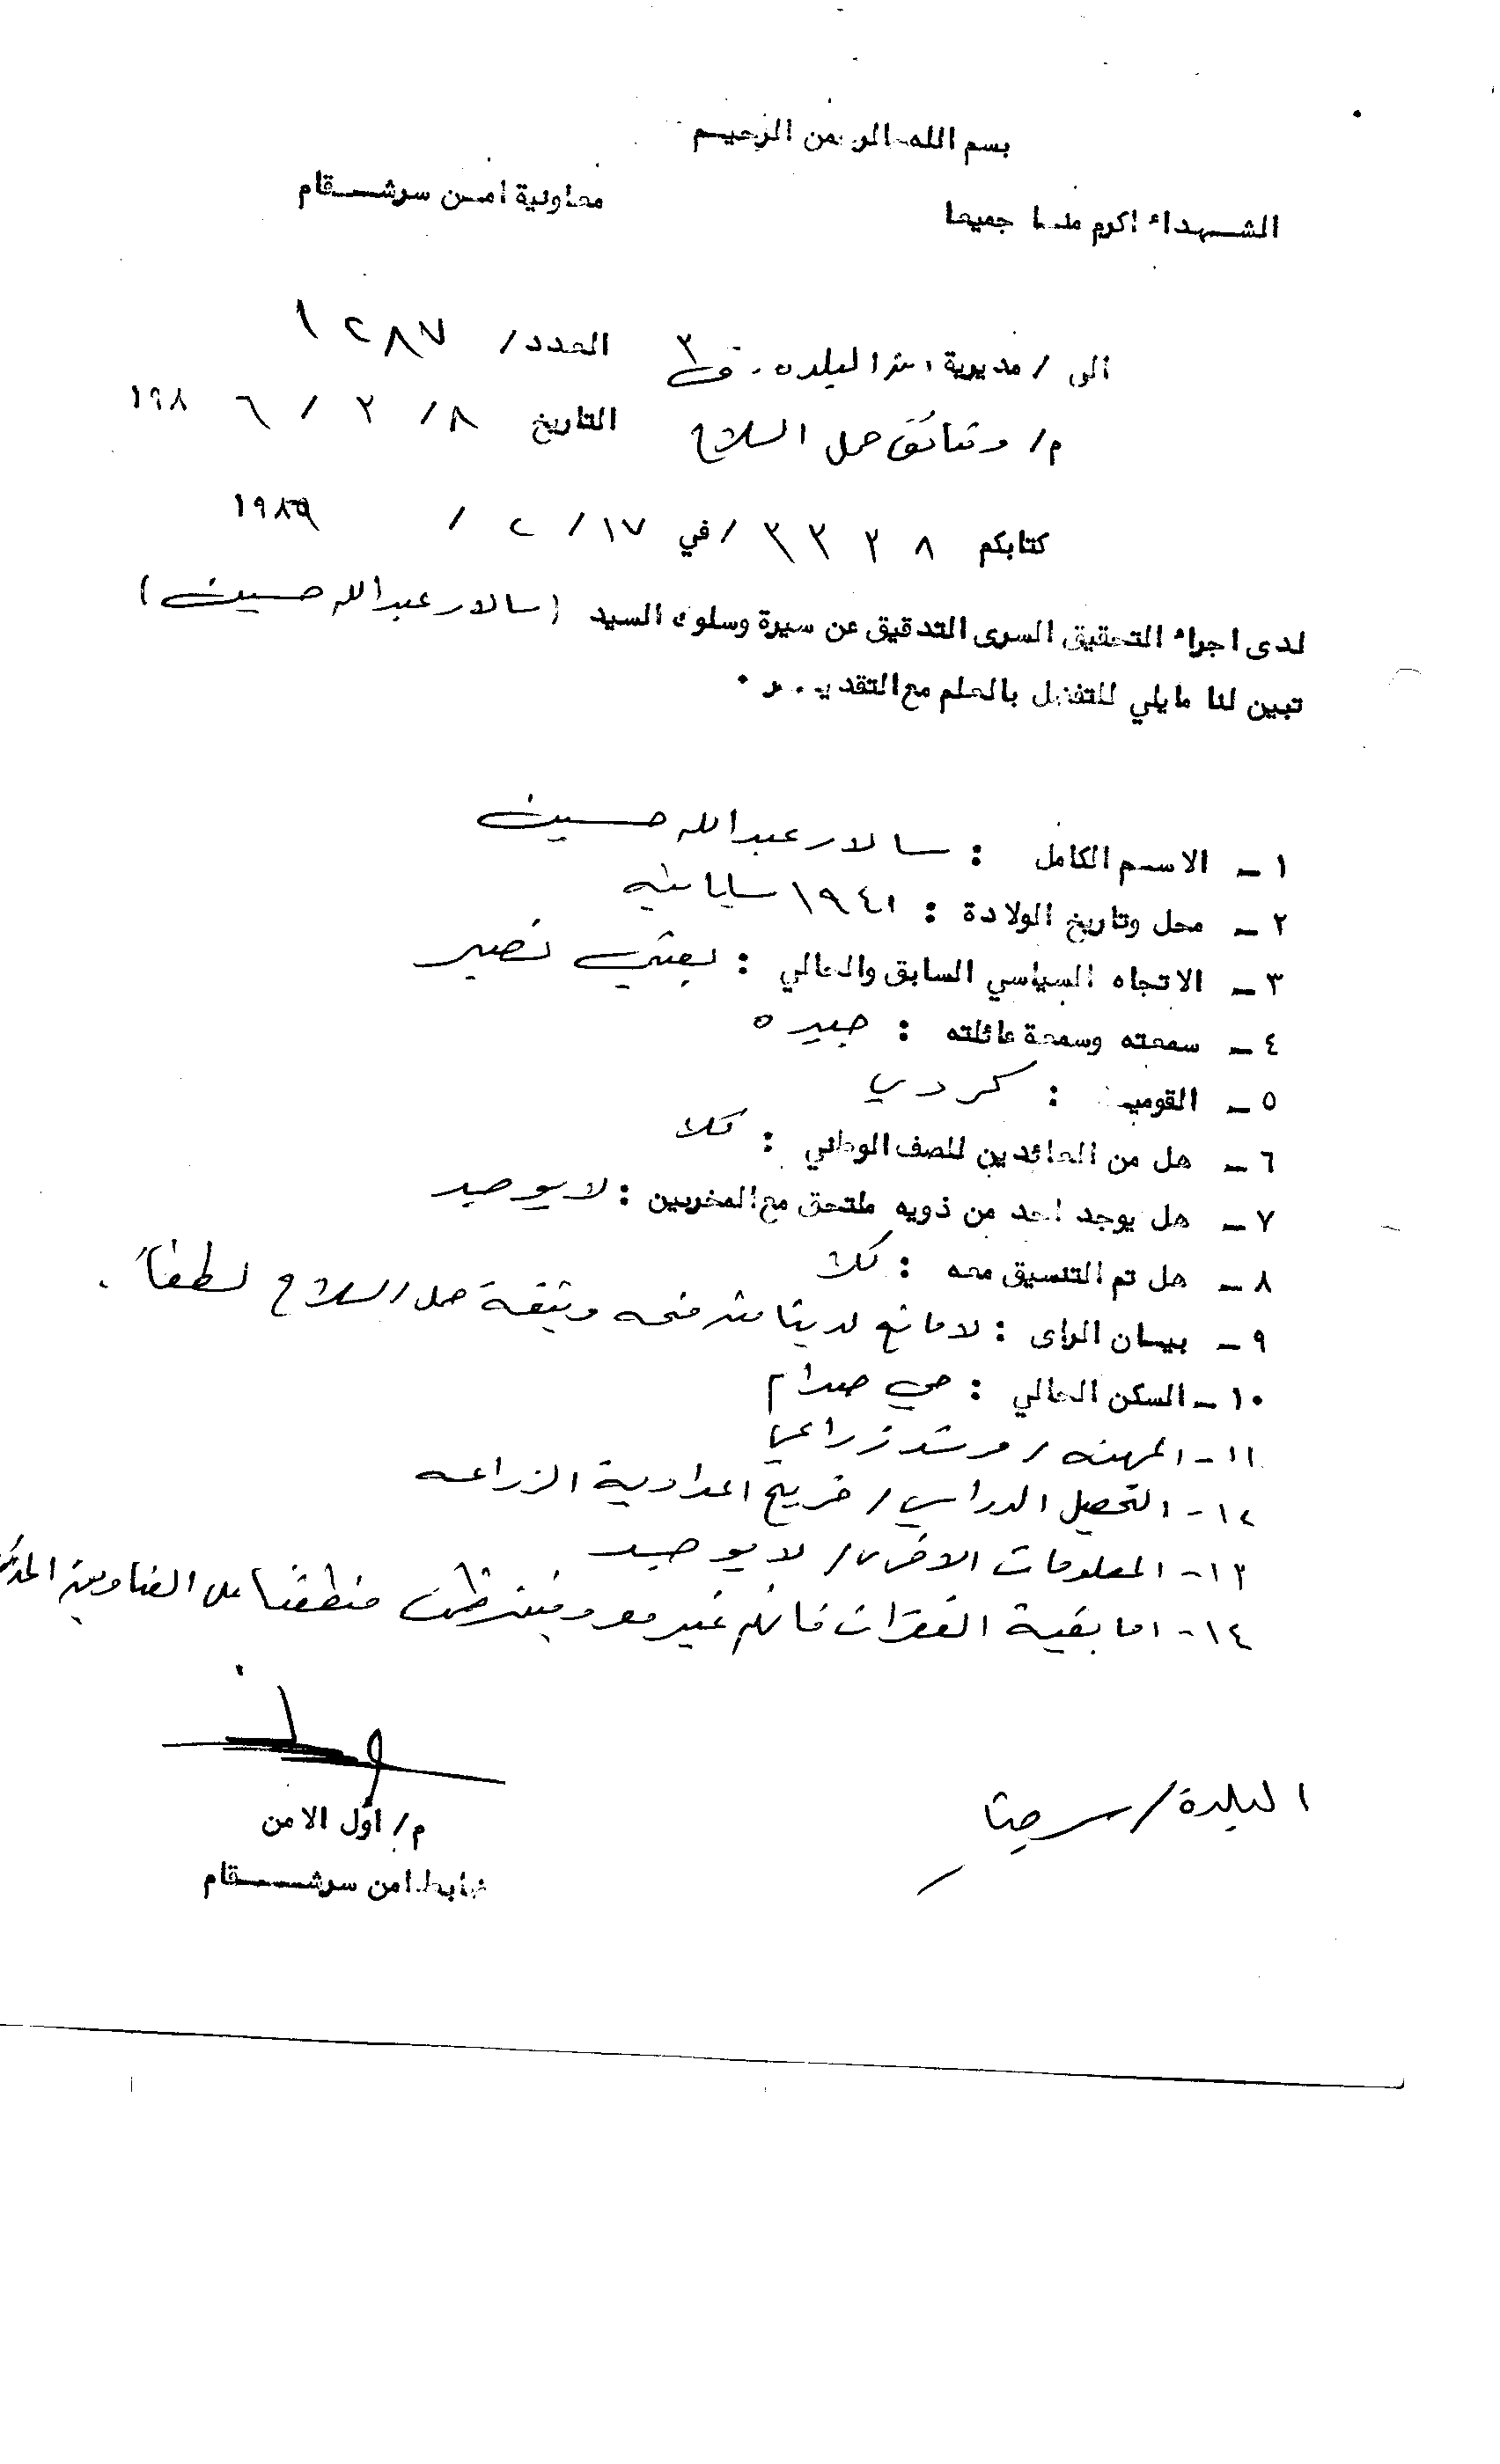 بسم الله الرحمن الرحيم
الشهداء اكرم منا جميعا معاونية امن سرشقام
الى / مديرية امن البلده . ق ٣ العدد / ١٢٨٧
م/ وثائق حمل السلاح التاريخ ٨ / ٣ / ١٩٨٦
كتابكم ٣٣٣٨ / في ١٧ / ٢ / ١٩٨
لدى اجراء التحقيق السرى التدقيق عن سيرة وسلوك السيد ( سالار عبدالله حسين )
تبين لنا مايلي للتفضل بالعلم مع التقدير .
١ – الاسم الكامل : سالار عبدالله حسين
٢ – محل وتاريخ الولادة : ١٩٤١ سليمانيه
٣ – الاتجاه السياسي السابق والحالي : بعثي نصير
٤ – سمعته وسمعة عائلته : جيده
٥ – القوميه : كردي
٦ – هل من العائدين للصف الوطني : كلا
٧ – هل يوجد احد من ذويه ملتحق مع المخربين : لا يوجد
٨ – هل تم التنسيق معه : كلا
٩ – بيان الراى : لا مانع لدينا من منحه وثيقة حمل السلاح لطفاً .
١٠ – السكن الحالي : حي صدام
١١ - المهنه / مرشد زراعي
١٢ - التحصيل الدراسي / خريج اعدادية الزراعه
١٣ - المعلومات الاخرى / لا يوجد
١٤ - اما بقية الفقرات فانهم غير معروفين ضمن منطقتنا على العناوين
البلدة /
م/ اوّل الامن
ضابط امن سرشقام